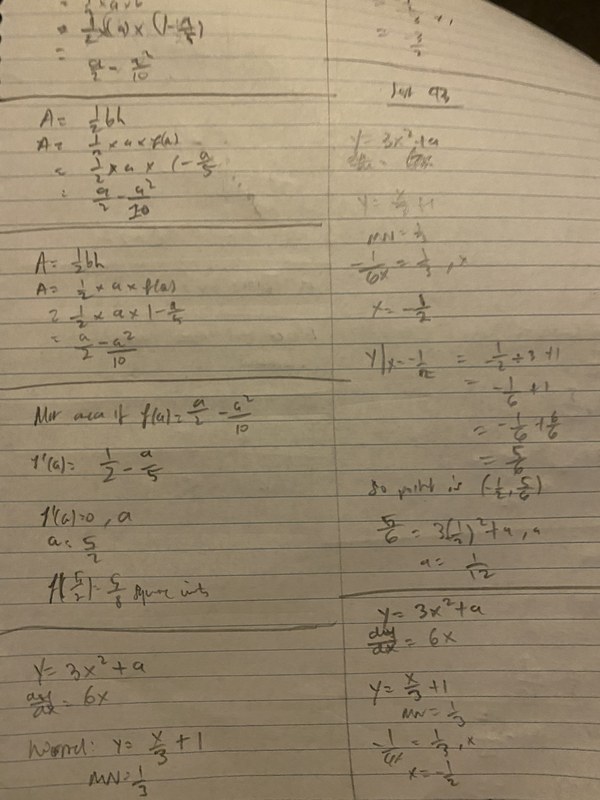 = 1/2 (a) × (1 - a/5)
=
a/2 - a²/10
A = 1/2 bh
A = 1/2 × a × f(a)
= 1/2 × a × (1 - a/5
= a/2 - a²/10
A = 1/2 bh
A = 1/2 × a × f(a)
= 1/2 × a × 1 - a/5
= a/2 - a²/10
area if f(a) = a/2 - a²/10
f'(a) = 1/2 - a/5
f'(a) = 0, a
a = 5/2
f(5/2) = 5/8 square units
y = 3x² + a
dy/dx = 6x
Normal: y = x/3 + 1
MN = 1/3
y = 3x² + a
y = x/3 + 1
MN = 1/3
-1/6x = 1/3, x
x = -1/2
y|x=-1/2 = -1/2 ÷ 3 + 1
= -1/6 + 1
= -1/6 + 6/6
= 5/6
So point is (-1/2, 5/6)
5/6 = 3(1/2)² + a, a
a = 1/12
y = 3x² + a
dy/dx = 6x
y = x/3 + 1
MN = 1/3
-1/6x = 1/3, x
x = -1/2